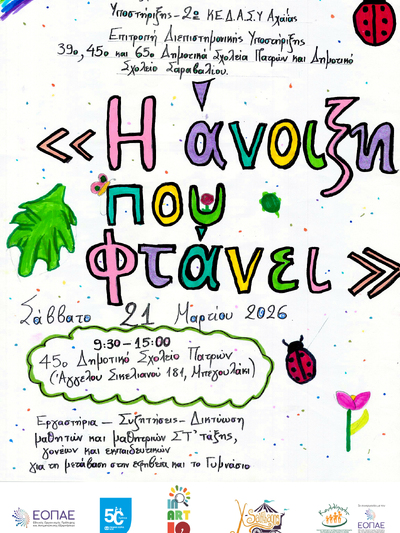 Υποστήριξης - 2ο ΚΕ.Δ.Α.Σ.Υ Αχαΐας
Επιτροπή Διεπιστημονικής Υποστήριξης
39ο, 45ο και 65ο Δημοτικά Σχολεία Πατρών και Δημοτικό
Σχολείο Σαραβαλίου.
«Η άνοιξη
που
φτάνει»
Σάββατο 21 Μαρτίου 2026
9:30-15:00
45ο Δημοτικό Σχολείο Πατρών
(Άγγελου Σικελιανού 181, Μπεγουλάκι)
Εργαστήρια - Συζητήσεις - Δικτύωση
μαθητών και μαθητριών ΣΤ' τάξης,
γονέων και εκπαιδευτικών
για τη μετάβαση στην εφηβεία και το Γυμνάσιο
ΕΟΠΑΕ
IN
ART
ΕΟΠΑΕ